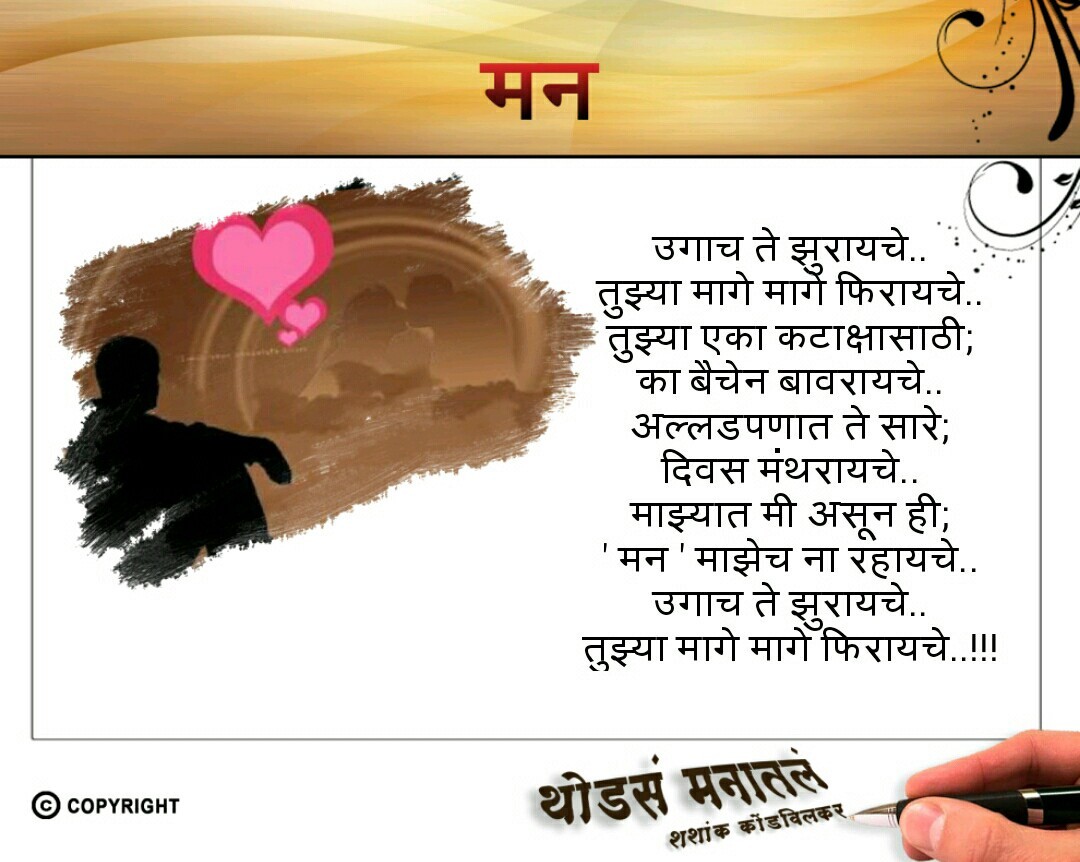 मन
उगाच ते झुरायचे..
तुझ्या मागे मागे फिरायचे..
तुझ्या एका कटाक्षासाठी;
का बैचेन बावरायचे..
अल्लडपणात ते सारे;
दिवस मंथरायचे..
माझ्यात मी असून ही;
' मन ' माझेच ना रहायचे..
उगाच ते झुरायचे..
तुझ्या मागे मागे फिरायचे..!!!
© COPYRIGHT
थोडसं मनातलं
शशांक कोंडविलकर